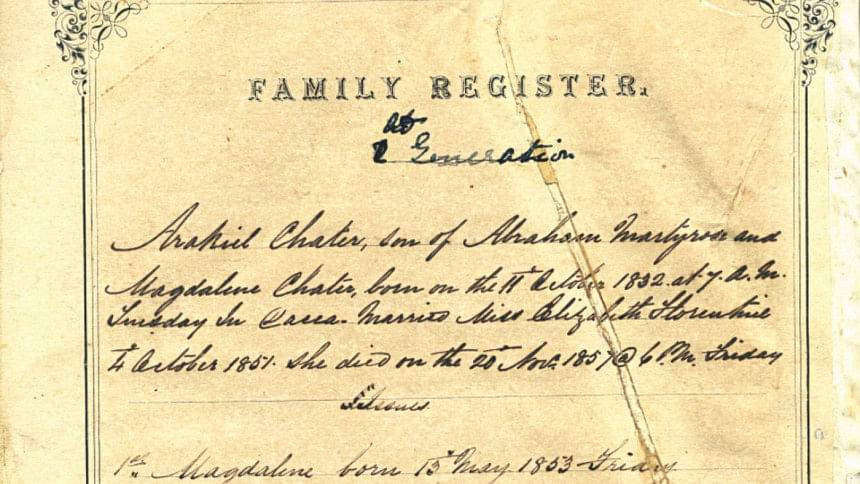 FAMILY REGISTER.
st
1 Generation
Arakiel Chater, son of Abraham Martyrose and
Magdalene Chater, born on the 11th October 1832 at 7. A.M.
Tuesday In Dacca. Married Miss Elizabeth Florentine
4th October 1851. She died on the 20th Nov. 1857 @ 6 P.M. Friday
Issues
1st Magdalene born 13th May 1853 Friday